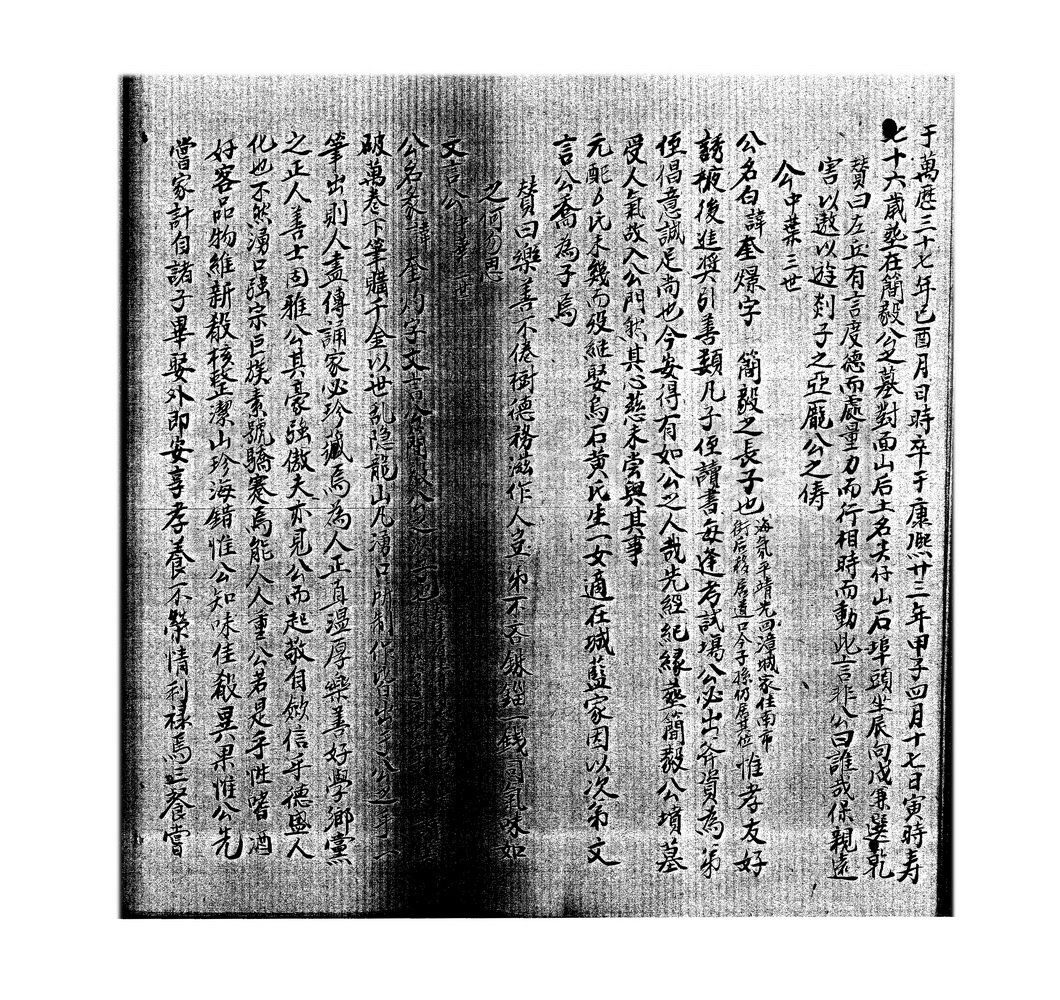 于萬歷三十七年己酉月日時卒于康熙廿三年甲子四月十七日寅時寿
七十六歲葬在簡毅公之墓對面山后土名夫仔山石埠頭坐辰向戌兼巽乾
贊曰左丘有言度德而處量力而行相時而動此言非公曰誰哉保親遠
害以遨以遊剡子之亞龐公之儔
公中葉三世
公名白諱奎爆字 簡毅之長子也海氛平靖先回漳城家住南市街后移居道口今子孫仍居其位惟孝友好
誘掖後進奬引善類凡子侄讀書每逢考試塲公必出斧資為弟
侄倡意誠足尚也今安得有如公之人哉先經紀緣葬簡毅公墳墓
受人氣故入公門然其心慈未尝與其事
元配 氏未幾而殁継娶烏石黄氏生一女適在城藍家因以次弟文
言公喬為子焉
贊曰樂善不倦樹德務滋作人豈弟不吝銖錙一錢同氣味如
之何勿思
文言公中葉三世
公名豪諱奎灼字文言公簡毅
破萬卷下筆贌千金以世乱隐龍山凡湧口所制作皆出于公之手
筆出則人盡傳誦家必珍藏焉為人正直溫厚樂善好學鄉黨
之正人善士固雅公其豪強傲夫亦見公而起敬自斂信乎德盛人
化也不然湧口強宗巨族素號驕蹇焉能人人重公若是乎性嗜酒
好客品物維新殽核整潔山珍海錯惟公知味佳殽異果惟公先
嘗家計自諸子畢娶外即安享孝養不縈情利祿焉三餐嘗